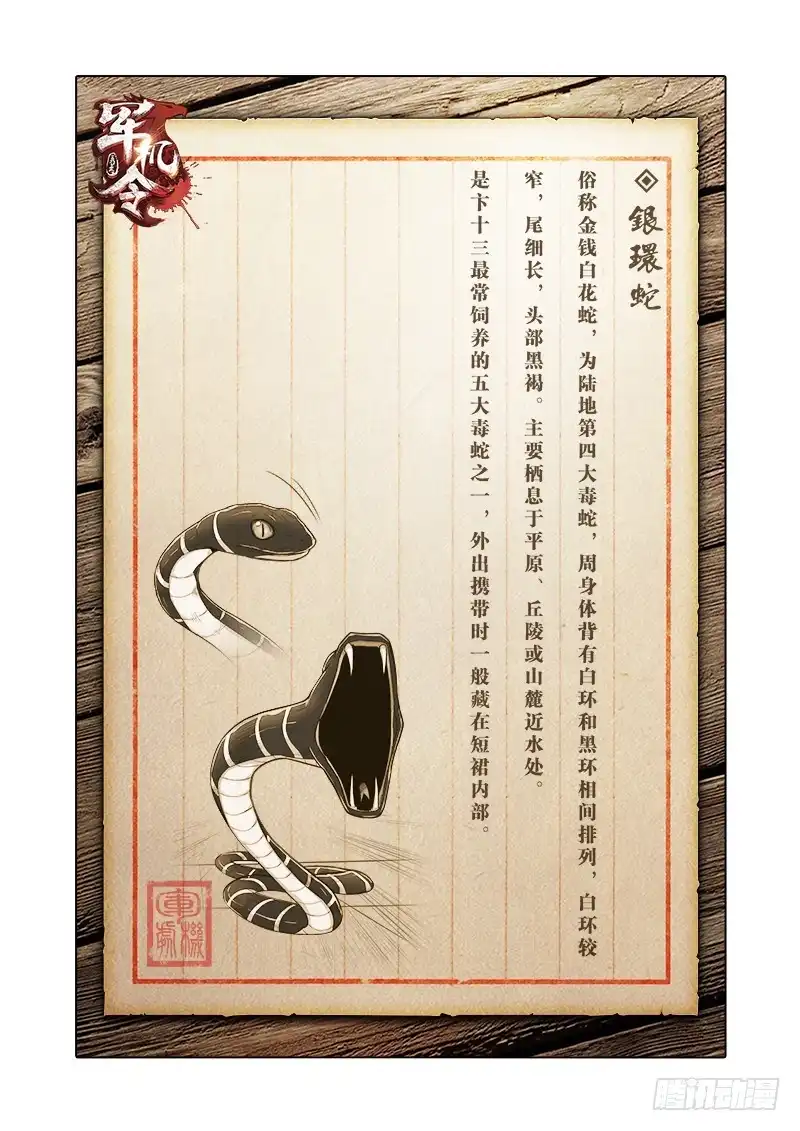 军机令
◈銀環蛇
俗称金钱白花蛇，为陆地第四大毒蛇，周身体背有白环和黑环相间排列，白环较
窄，尾细长，头部黑褐。主要栖息于平原、丘陵或山麓近水处。
是卞十三最常饲养的五大毒蛇之一，外出携带时一般藏在短裙内部。
軍機處
腾讯动漫